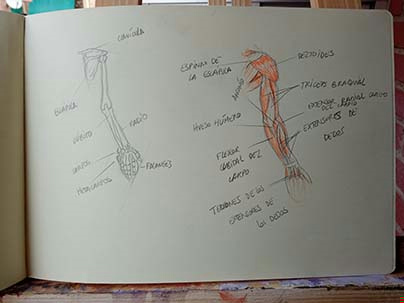 CLAVÍCULA
ESCAPULA
CÚBITO
RADIO
CARPOS
METACARPOS
FALANGES
ESPINAS DE
LA ESCAPULA
DELTOIDES
TRÍCEPS BRAQUIAL
HUESO HÚMERO
EXTENSOR RADIAL LARGO
DEL CARPO
EXTENSORES DE
DEDOS
FLEXOR
CUBITAL DEL
CARPO
TENDONES DE LOS
EXTENSORES DE
LOS DEDOS